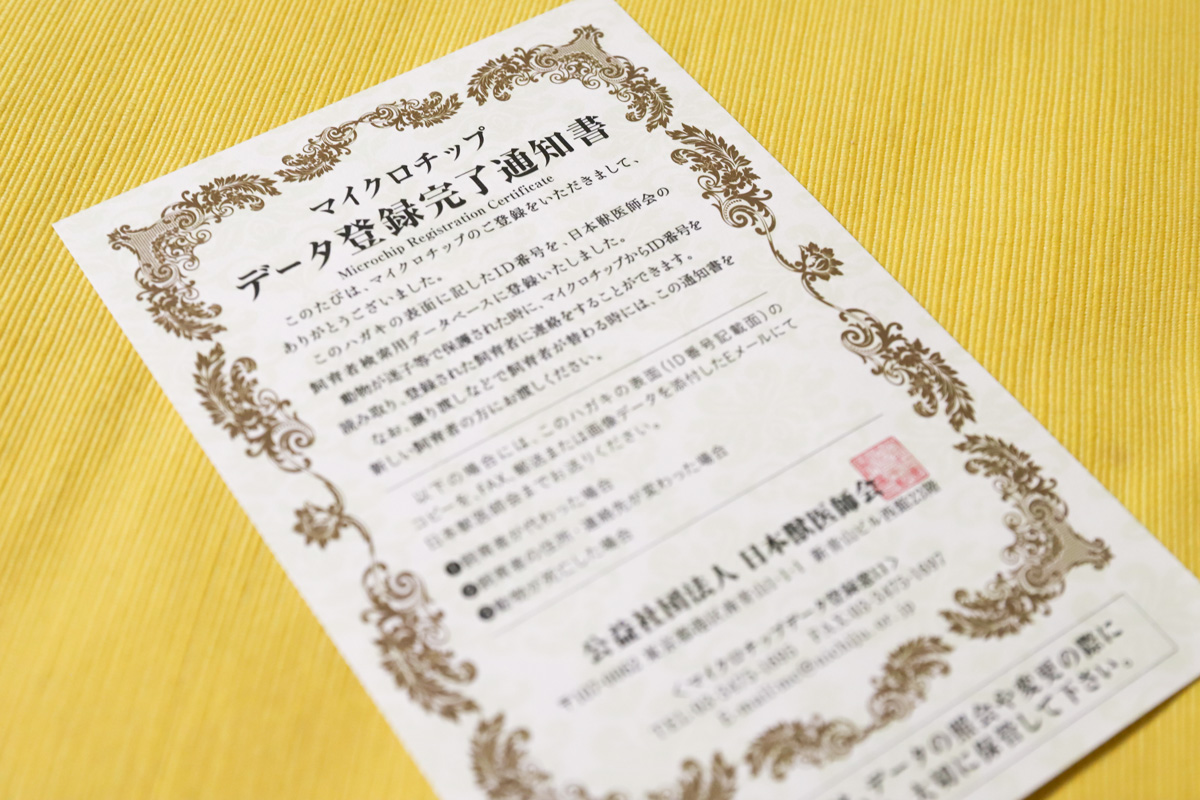 マイクロチップ
データ登録完了通知書
Microchip Registration Certificate
このたびは、マイクロチップのご登録をいただきまして、
ありがとうございました。
このハガキの表面に記したID番号を、日本獣医師会の
飼育者検索用データベースに登録いたしました。
動物が迷子等で保護された時に、マイクロチップからID番号を
読み取り、登録された飼育者に連絡をすることができます。
なお、譲り渡しなどで飼育者が替わる時には、この通知書を
新しい飼育者の方にお渡しください。
以下の場合には、このハガキの表面(ID番号記載面)の
コピーを、FAX、郵送または画像データを添付したEメールにて
日本獣医師会までお送りください。
❶飼育者が代わった場合
❷飼育者の住所・連絡先が変わった場合
❸動物が死亡した場合
公益社団法人 日本獣医師会
〒107-0062 東京都港区南青山1-1-1 新青山ビル西館23階
<マイクロチップデータ登録窓口>
TEL.03-3475-1695 FAX.03-3475-1697
データの照会や変更の際に
大切に保管して下さい。